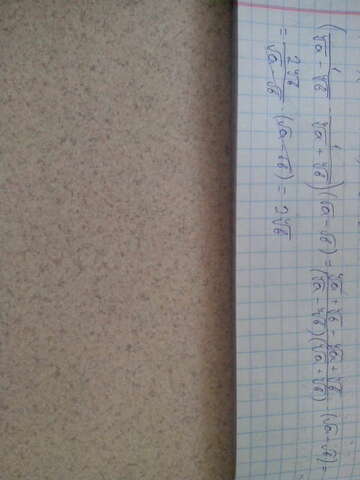 (1/(∜a - ∜b) - 1/(∜a + ∜b)) (√a - √b) = (∜a + ∜b - ∜a + ∜b)/((∜a - ∜b)(∜a + ∜b)) (√a - √b) =
= 2∜b/(√a - √b) · (√a - √b) = 2∜b